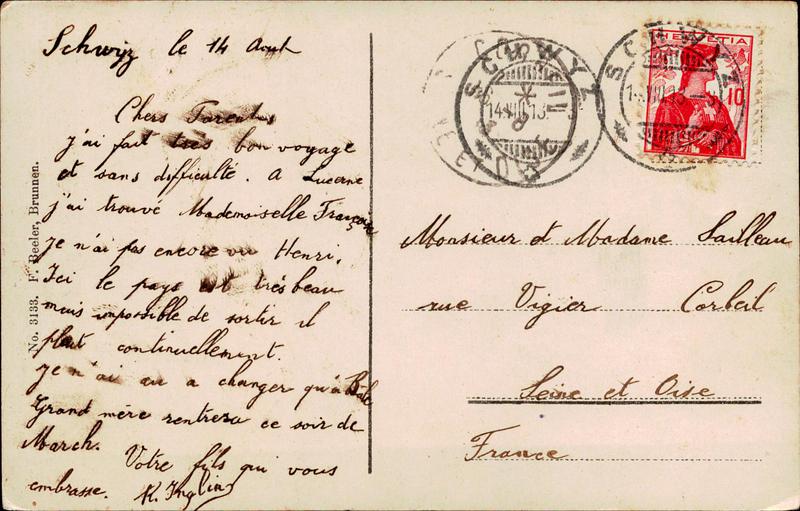 Schwyz le 14 Aout
Chers Parents
j'ai fait très bon voyage
et sans difficulté. A Lucerne
j'ai trouvé Mademoiselle Françoise
je n'ai pas encore vu Henri.
Ici le pays est trés beau
mais impossible de sortir il
pleut continuellement.
je n'ai eu a changer qu'à Bâle
Grand mère rentrera ce soir de
March.
Votre fils qui vous
embrasse. K. Inglin
No. 3133. F. Beeler, Brunnen.
SCHWYZ
14.VIII.13.
SCHWYZ
HELVETIA
10
Monsieur et Madame Sailleau
rue Vigier Corbeil
Seine et Oise
France